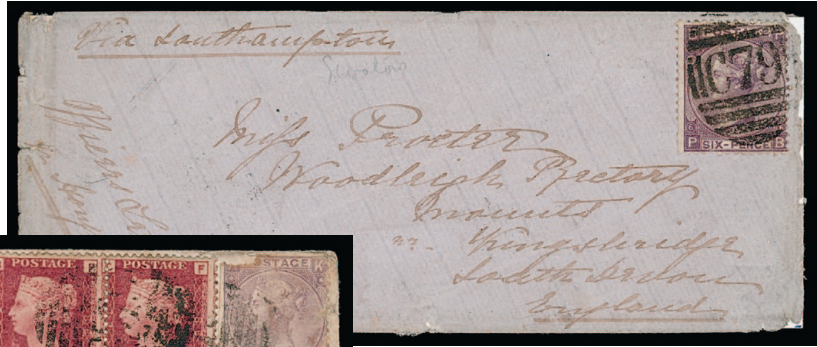 Via Southampton
POSTAGE
C79
P SIX-PENCE B
Miss Procter
Woodleigh Rectory
Mounts
nr. Kingsbridge
South Devon
England
POSTAGE
POSTAGE F
STAGE K